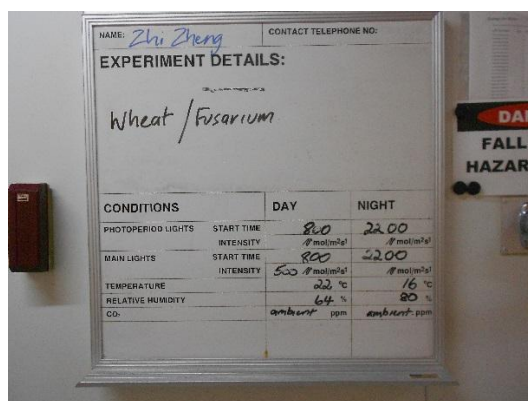 NAME: Zhi Zheng CONTACT TELEPHONE NO:
EXPERIMENT DETAILS:
Wheat / Fusarium
CONDITIONS DAY NIGHT
PHOTOPERIOD LIGHTS START TIME 800 2200
INTENSITY mol/m²s¹ mol/m²s¹
MAIN LIGHTS START TIME 800 2200
INTENSITY 500 mol/m²s¹ mol/m²s¹
TEMPERATURE 22 °C 16 °C
RELATIVE HUMIDITY 64 % 80 %
CO₂ ambient ppm ambient ppm
DA
FALL
HAZAR